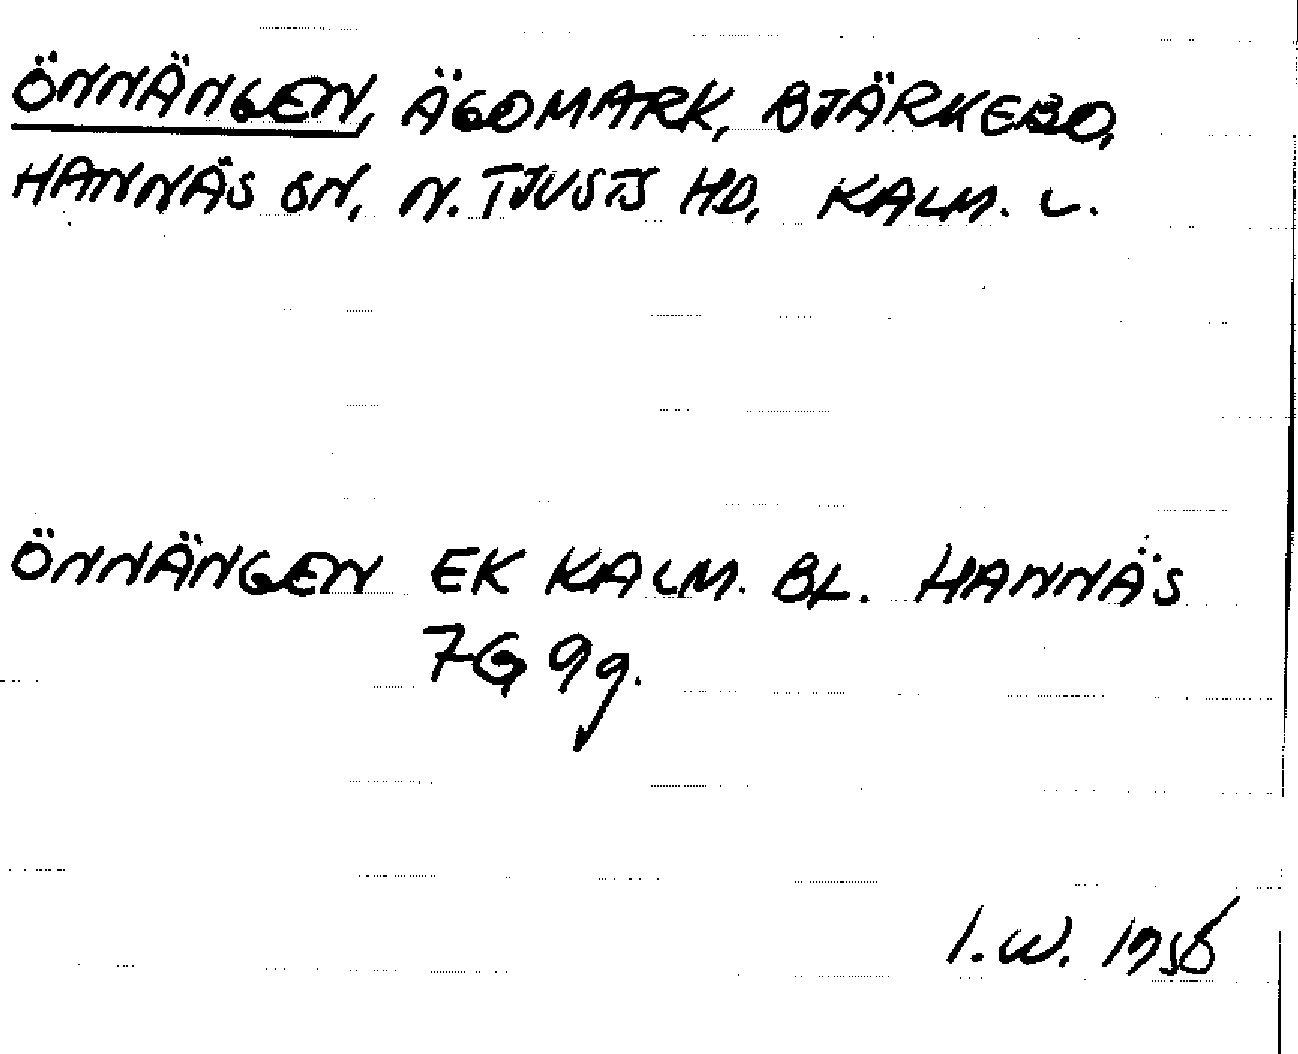 ÖNNÄNGEN, ÄGOMARK, BJÄRKEBO,
HANNÄS SN, N. TJUSTS HD, KALM. L.
ÖNNÄNGEN EK KALM. BL. HANNÄS
7G 9g.
I.W. 1956